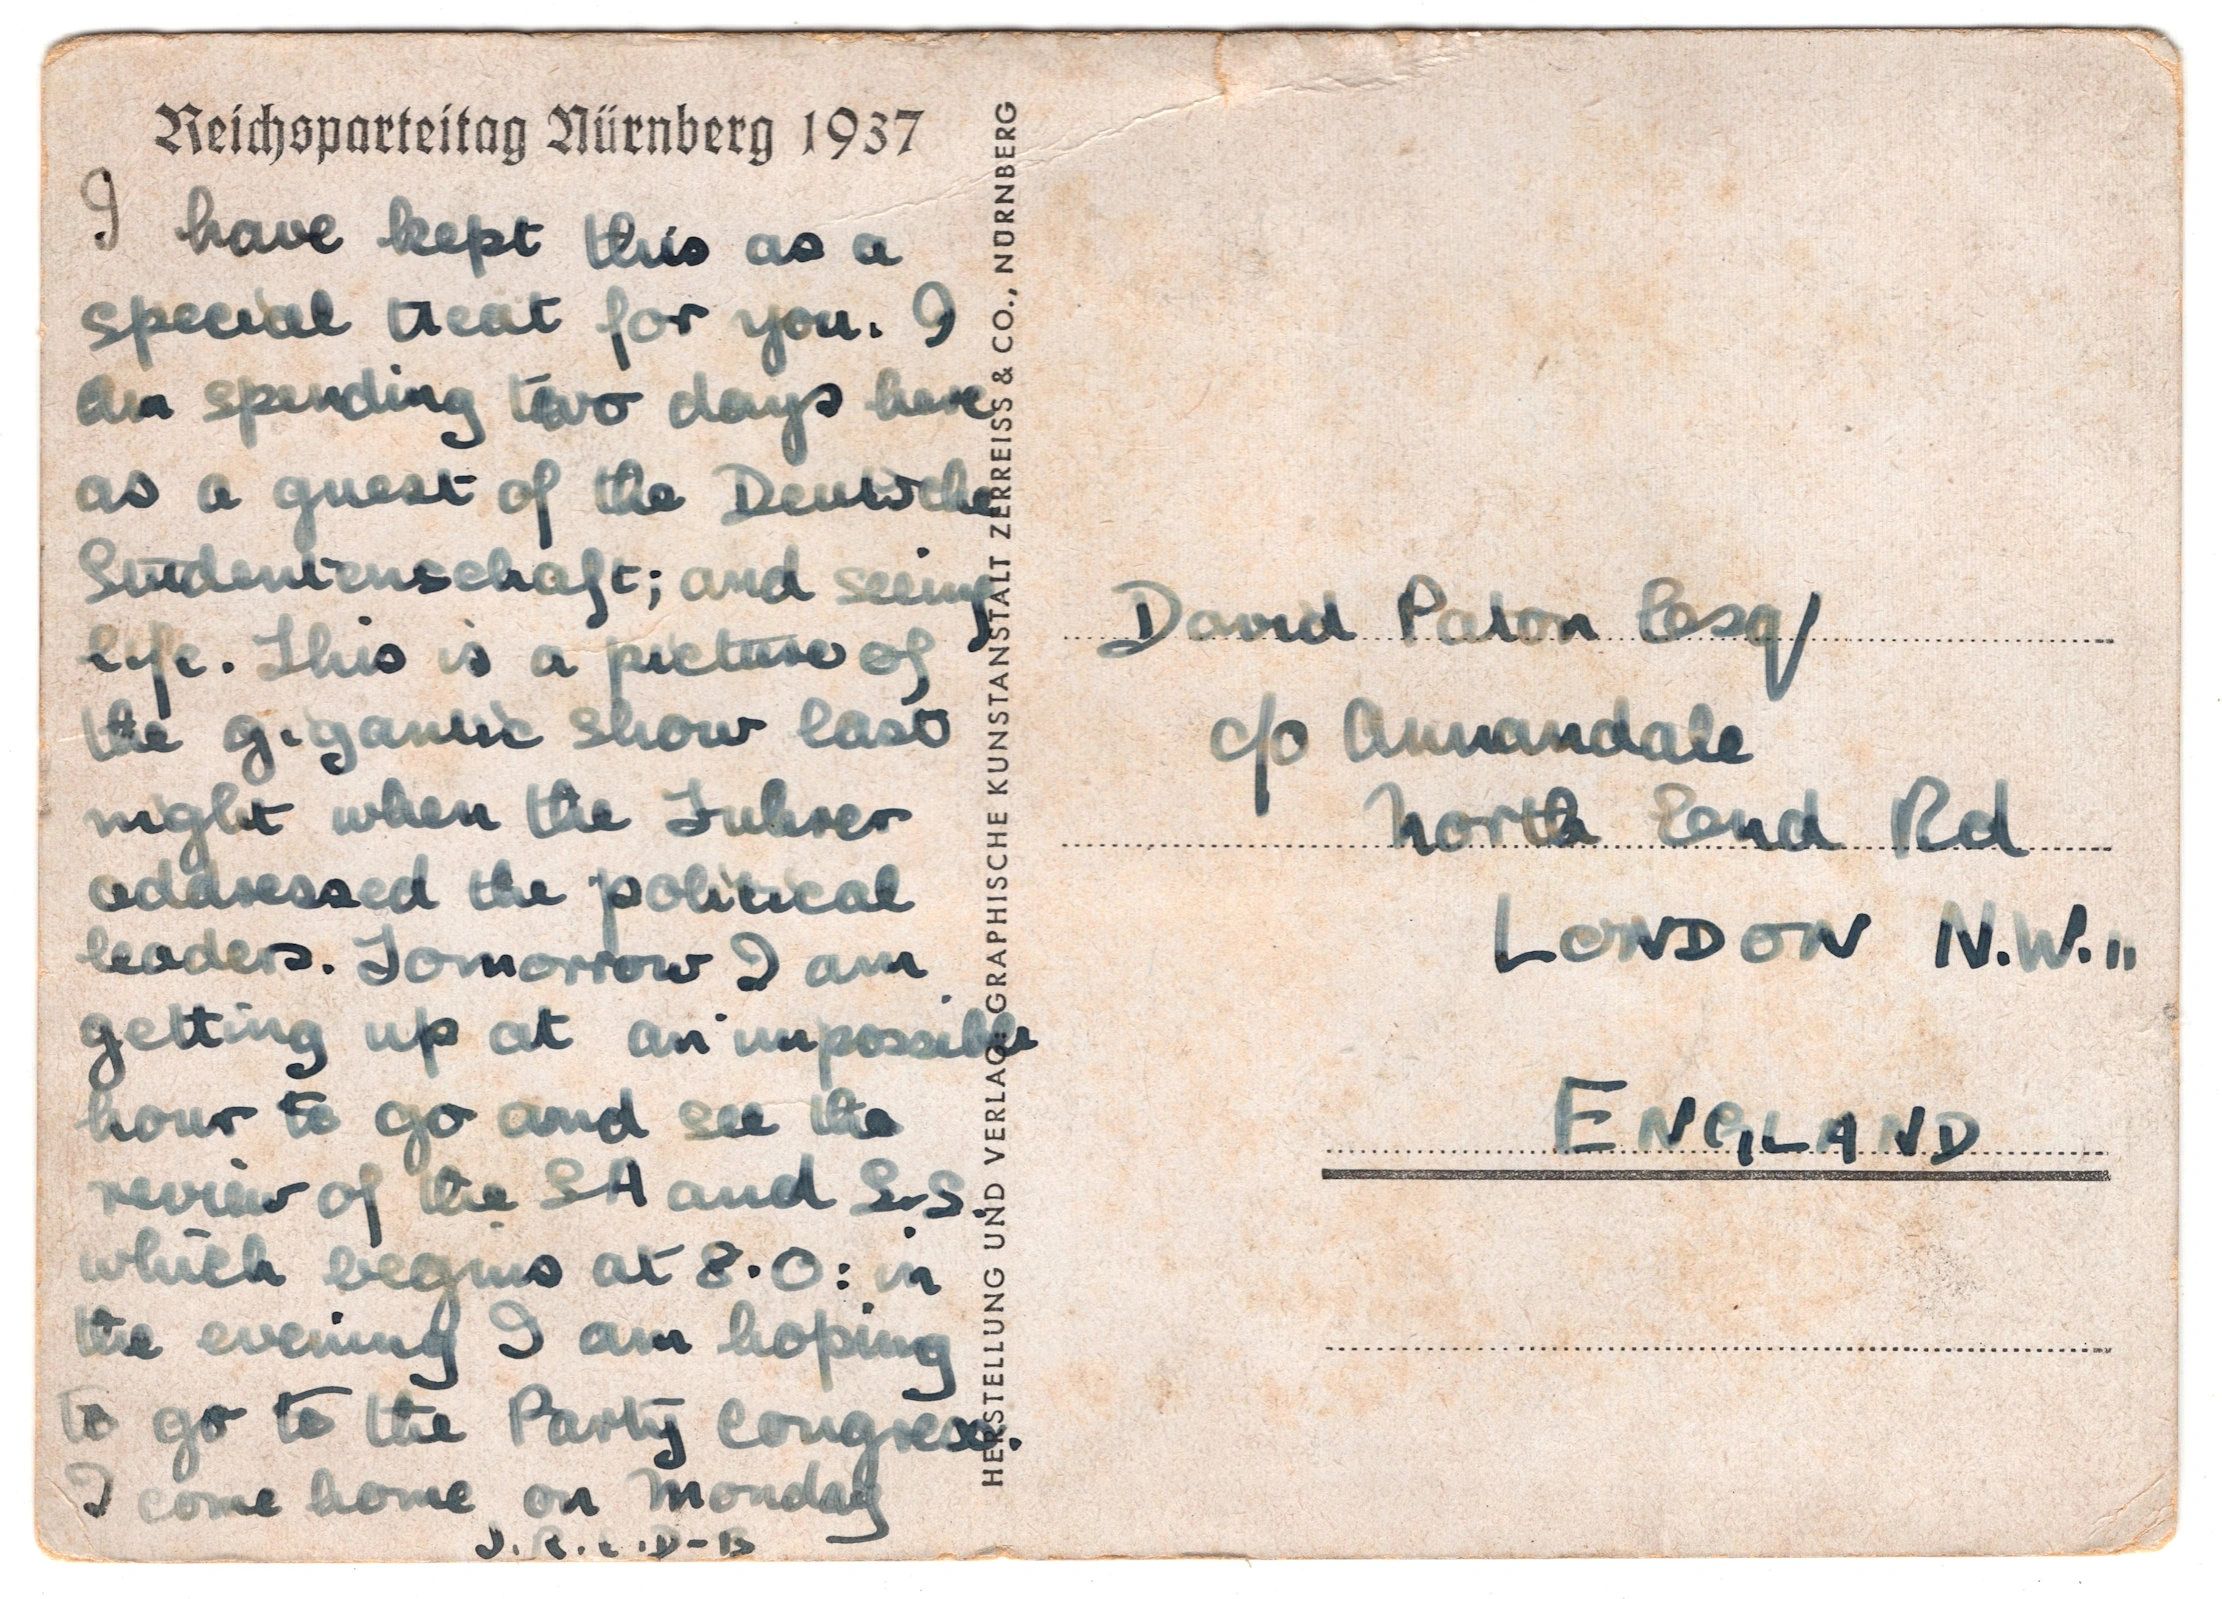 Reichsparteitag Nürnberg 1937
I have kept this as a
special treat for you. I
am spending two days here
as a guest of the Deutsche
Studentenschaft; and seeing
life. This is a picture of
the gigantic show last
night when the Fuhrer
addressed the political
leaders. Tomorrow I am
getting up at an impossible
hour to go and see the
review of the SA and S.S.
which begins at 8.0: in
the evening I am hoping
to go to the Party Congress.
I come home on Monday
J.R.L.D-B
HERSTELLUNG UND VERLAG: GRAPHISCHE KUNSTANSTALT ZERREISS & CO., NÜRNBERG
David Paton Esq
c/o Annandale
North End Rd
LONDON N.W.11
ENGLAND